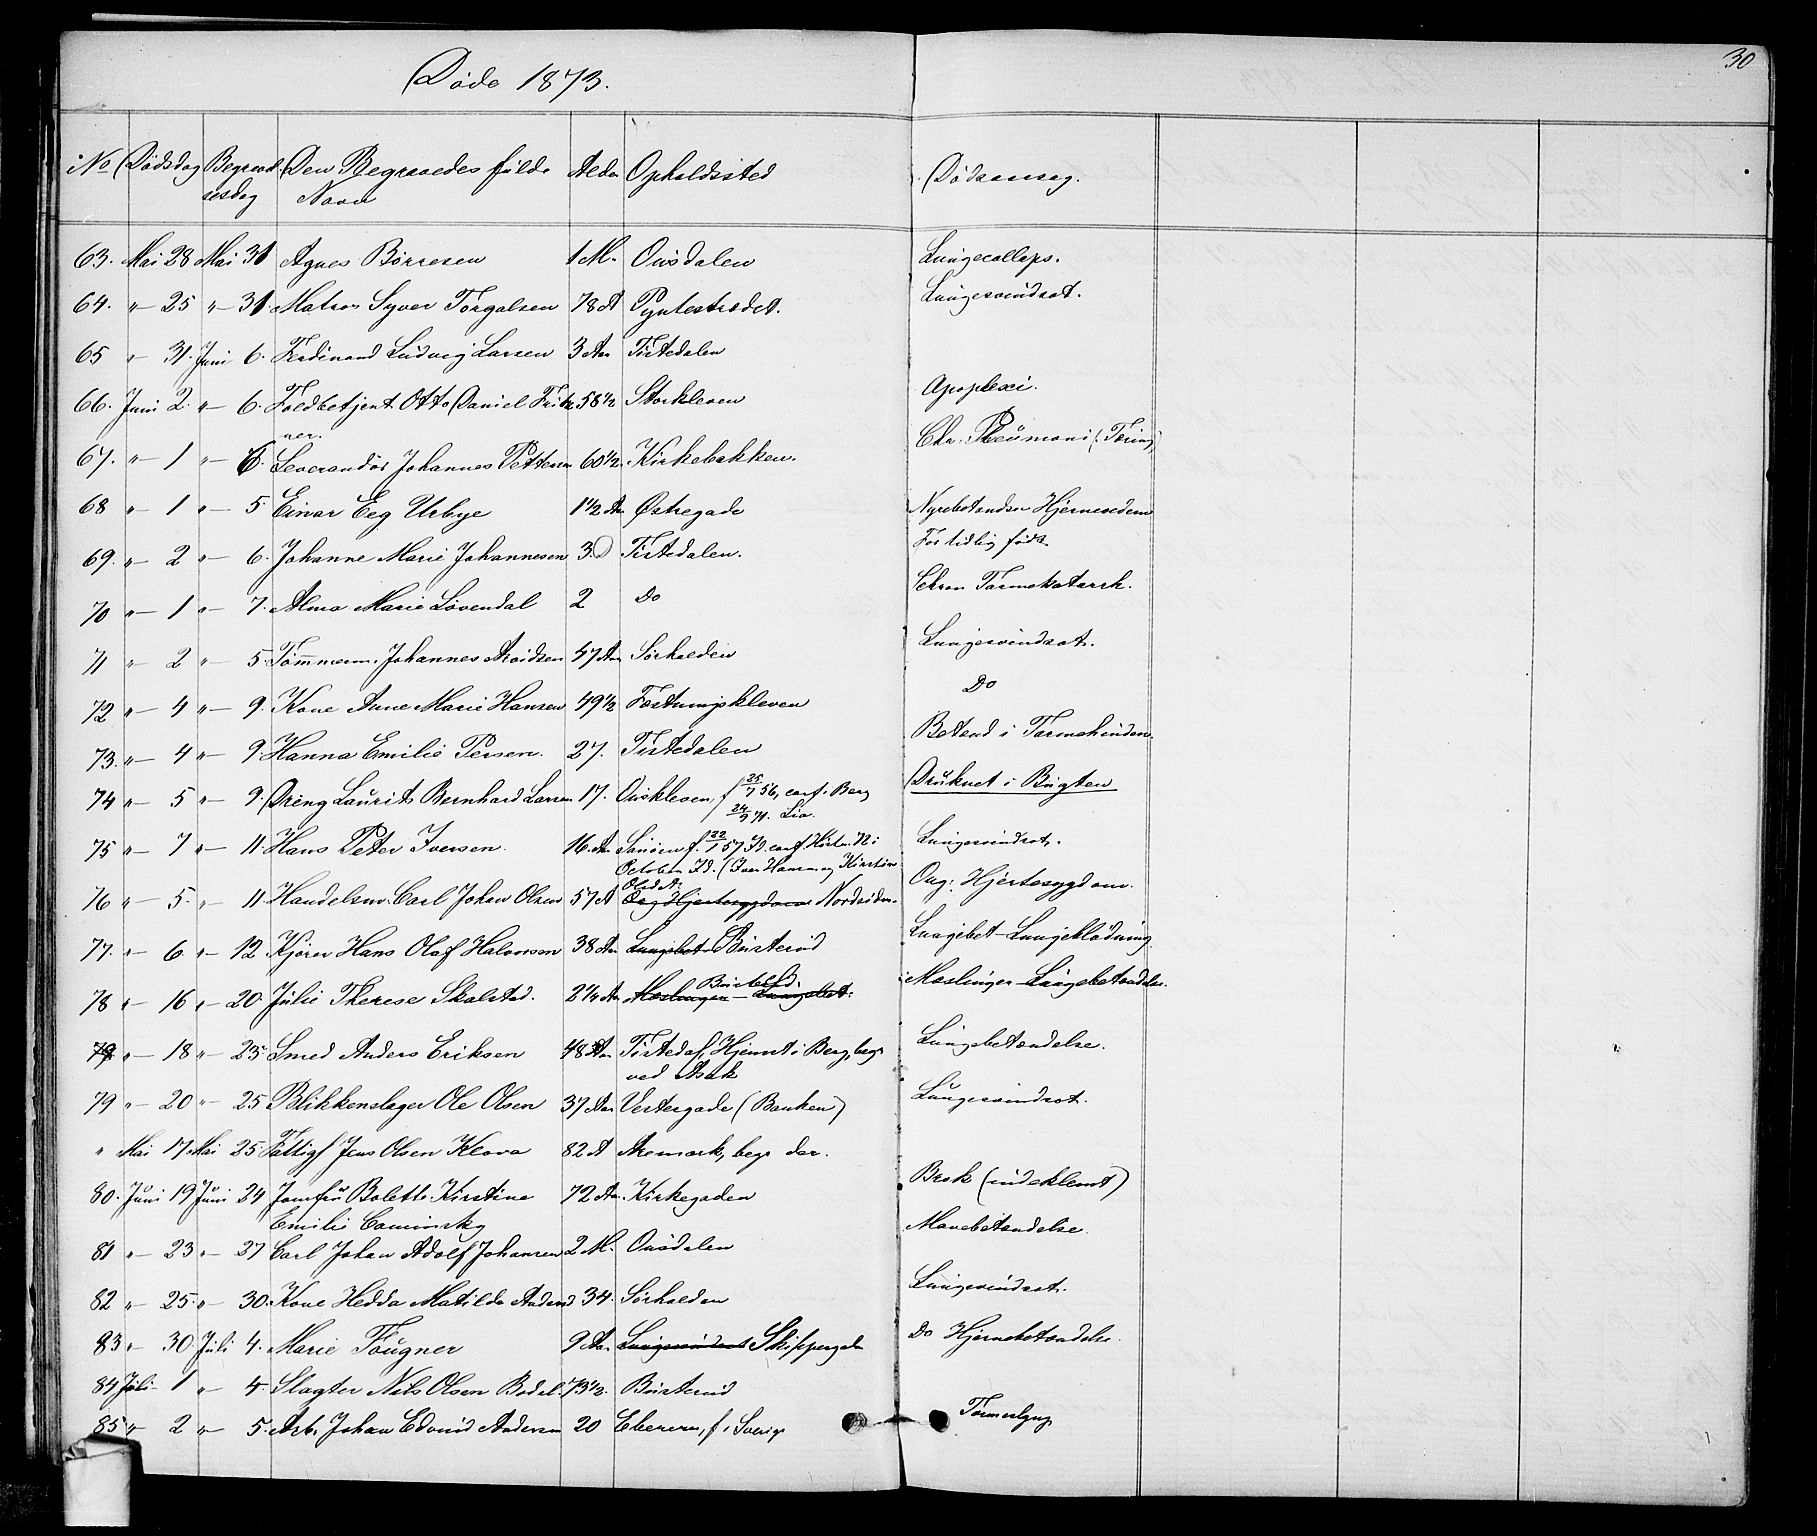 30
Døde 1873.
No Dødsdag Begravelsesdag Den Begravedes fulde Navn Alder Opholdssted Dødsaarsag.
63. Mai 28 Mai 31 Agnes Børresen 1 M. Ousdalen Lungecollaps.
64. " 25 " 31. Matros Syver Torgalsen 78 A Pyntestrædet. Lungesvindsot.
65 " 31. Juni 6. Ferdinand Ludvig Larsen 3 Aar Tistedalen
66. Juni 2. " 6. Toldbetjent Otto Daniel Fritzner. 58 1/2 Storkleven Apoplexi.
67. " 1 " 6. Leverandør Johannes Pettersen 60 1/2 Kirkebakken. Chr. Pneumoni (Tæring)
68 " 1 " 5 Einar Eeg Urbye 1 1/2 Aar Østregade Nyrebetændse Hjerneødem
69. " 2 " 6. Johanne Marie Johannesen 3. D Tistedalen. For tidlig født
70 " 1 " 7. Alma Marie Løvendal 2 Do Chron Tarmekatarrh.
71 " 2 " 5. Tømmerm. Johannes Arvidsen 47 Aar Sørhalden Lungesvindsot.
72 " 4 " 9. Kone Anne Marie Hansen 49 1/2 Fæstningskleven Do
73. " 4 " 9. Hanna Emilie Persen. 27. Tistedalen Betænd i Tarmehinden.
74 " 5 " 9. Dreng Laurits Bernhard Larsen 17. Ouskleven, f 25/7 56, conf. Berg Druknet i Bugten
24/9 71. Lia.
75 " 7 " 11. Hans Peter Iversen. 16. Aar Sanøen f. 22/1 57 Id. conf. Høsten 72 i Lungesvindsot.
October Id. (Iver Hansen og Kirstine
Olsd
76 " 5. " 11. Handelsm. Carl Johan Olsen 57 A Org Hjertesygdom Nordsiden Org: Hjertesygdom.
77. " 6. " 12 Kjører Hans Olaf Halvorsen 38 Aar Lungebet Busterud Lungebet-Lungeblødning
78 " 16 " 20. Julie Therese Skolstad. 2 1/4 Aar Meslinger - Lungebet: Busterud. Meslinger - Lungebetændelse.
79 " 18 " 23. Smed Anders Eriksen 48 Aar Tistedal, Hjemst i Berg, begr Lungebetændelse.
ved Asak
79 " 20 " 25 Blikkenslager Ole Olsen 37 Aar Vestergade (Banken) Lungesvindsot.
" Mai 17 Mai 25. Fattigf Jens Olsen Klova 82 A Aremark, begr der.
80. Juni 19 Juni 24 Jomfru Bolette Kirstine 72 Aar Kirkegaden Brok (indeklemt)
Emilie Caminsky
81 " 23 " 27 Carl Johan Adolf Johansen 2 M. Ousdalen Mavebetændelse.
82 " 25. " 30. Kone Hedda Matilde Andersd 34. Sørhalden Lungesvindsot.
83 " 30 Juli 4. Marie Fougner 9 Aar Lungesvindsot Skippergaden Do Hjernebetændelse.
84 Juli 1 " 4. Slagter Nils Olsen Bødal. 73 1/2. Busterud
85 " 2 " 5. Arb. Johan Edvind Andersen 20 f. i Sverige